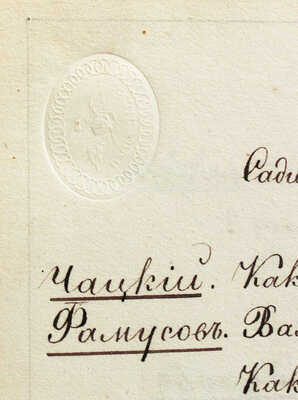 Сади
Чацкій. Как
Фамусовъ. Ва
Как